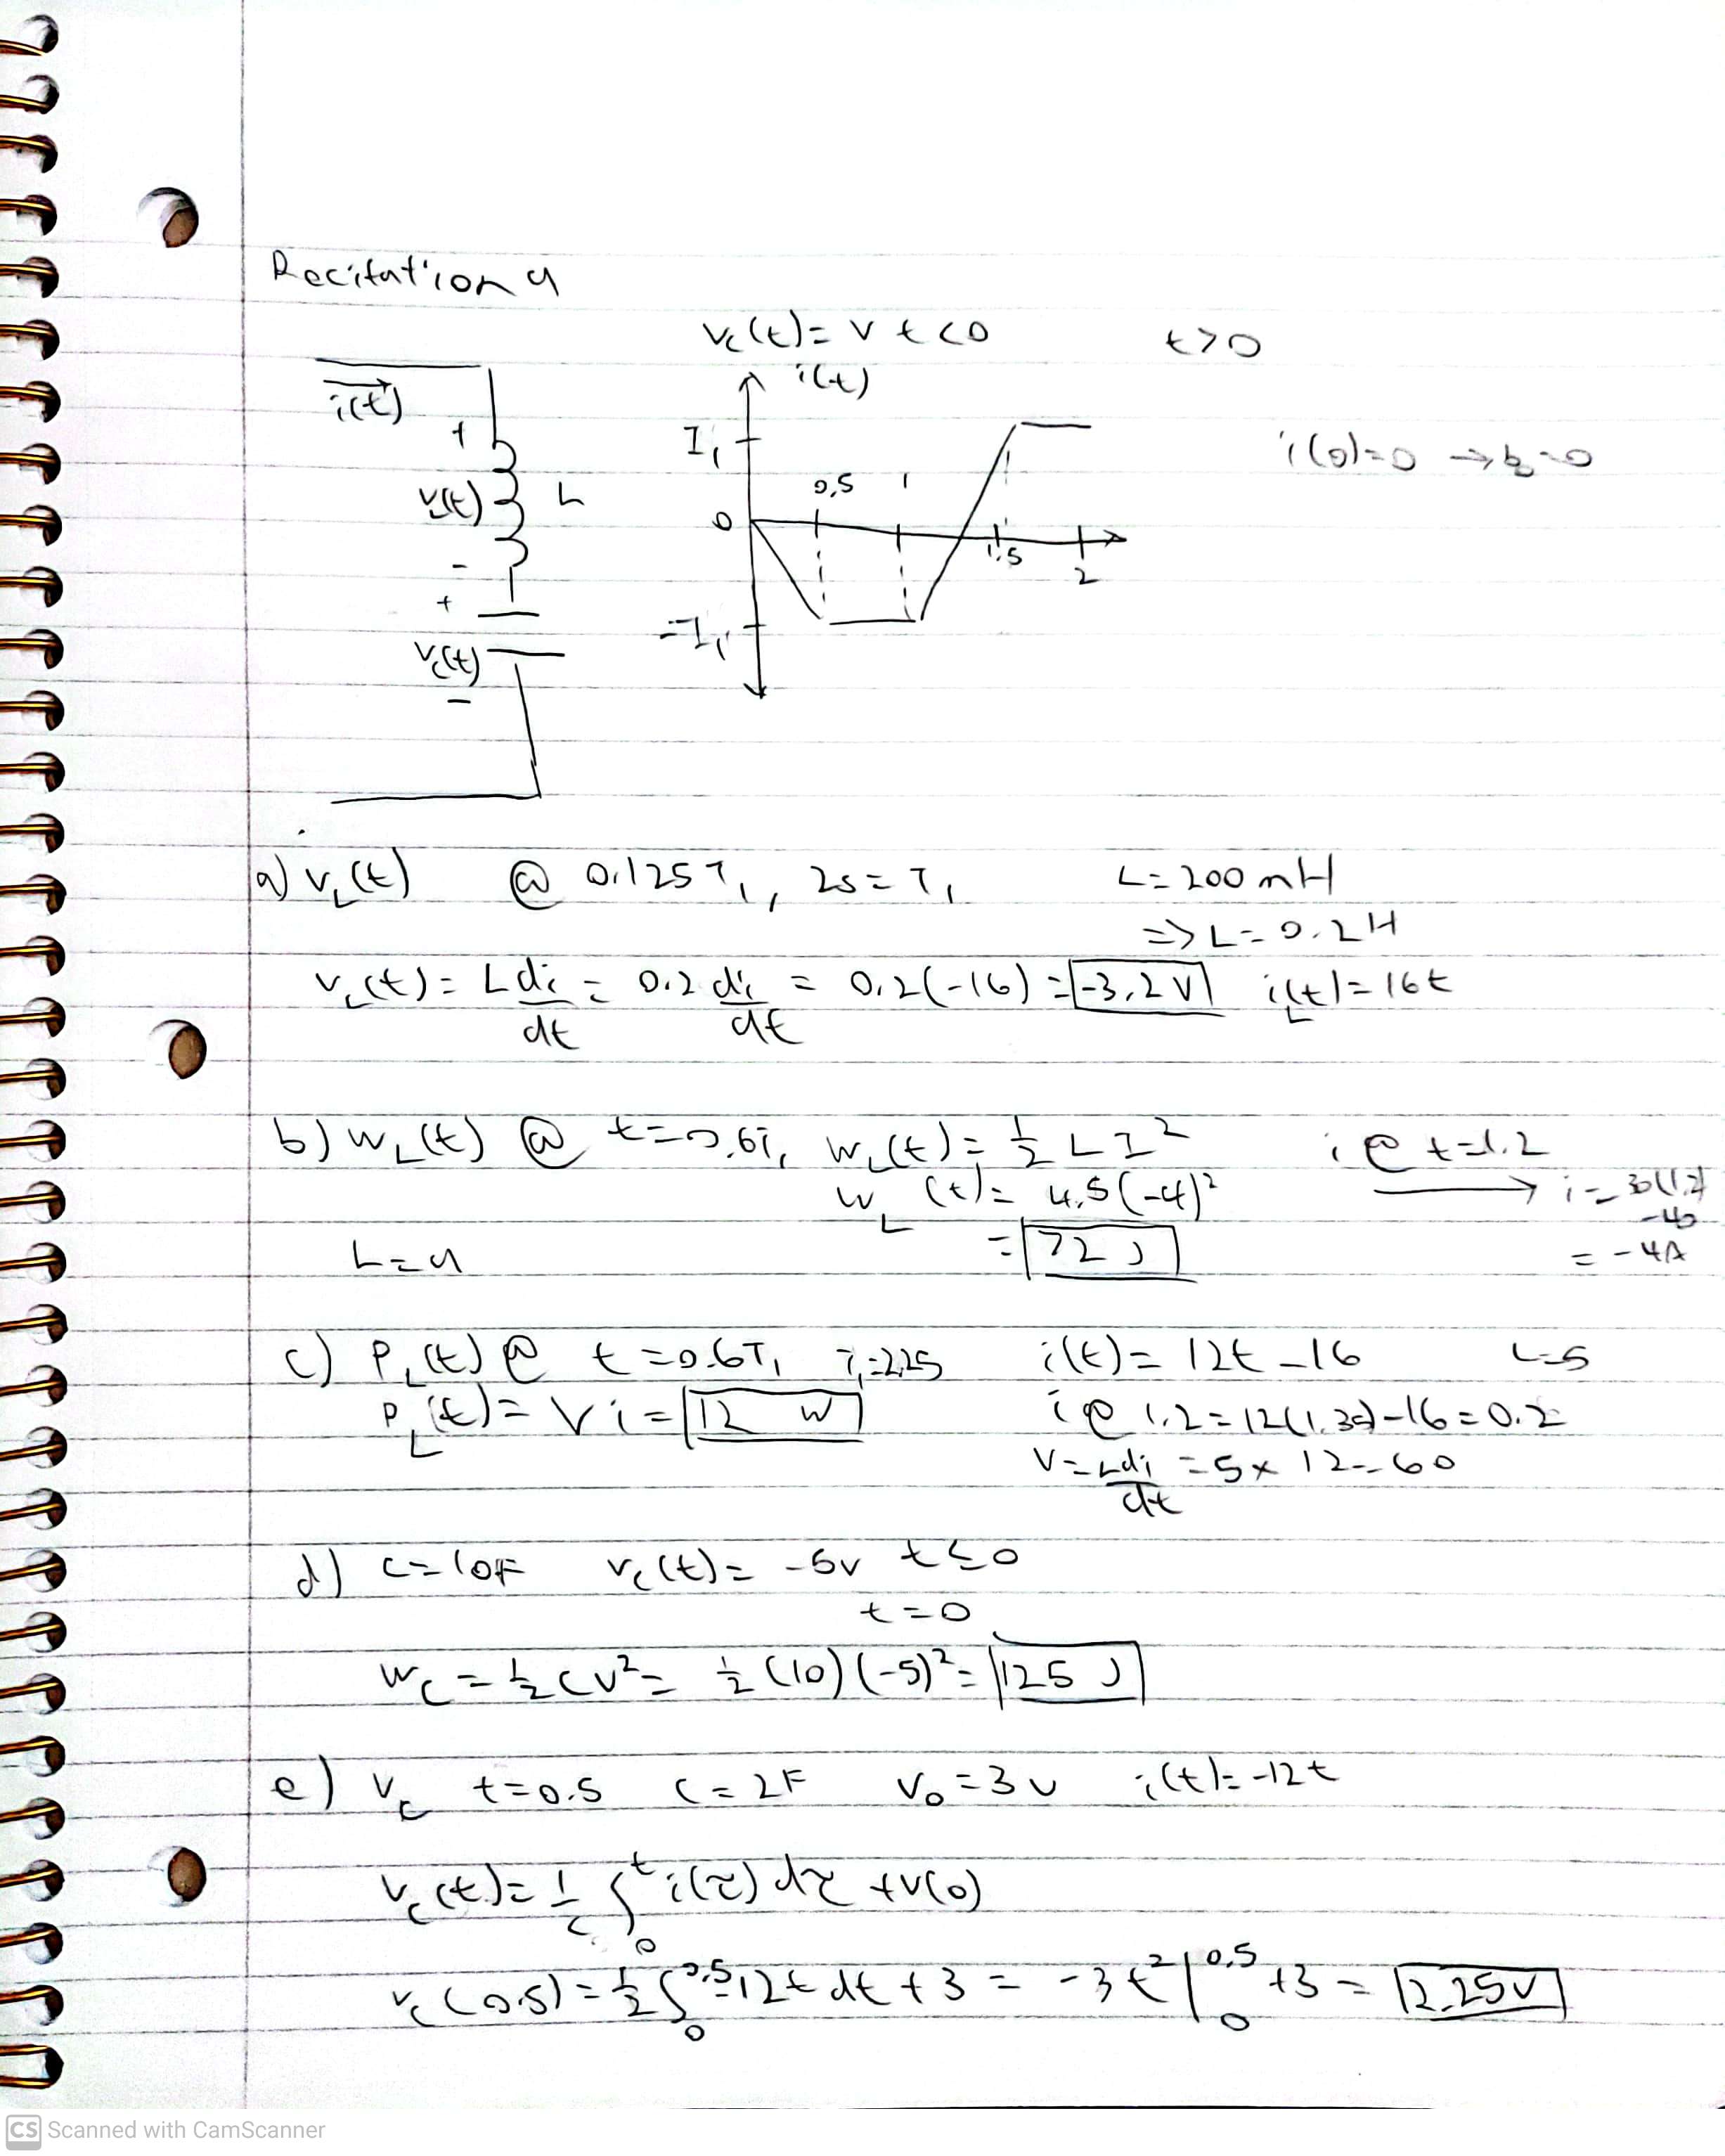 Recitation 4
Vc(t)= V t<0 t>0
i(t)
i(t)
+
I1
i(0)=0 → b=0
0.5 1
VL(t) L
0
1.5
2
-
+
-I1
Vc(t)
-
a) VL(t) @ 0.125T1, 2s = T1 L= 200 mH
=> L= 0.2H
VL(t)= L di/dt = 0.2 di/dt = 0.2(-16) = -3.2 V iL(t)= 16t
b) WL(t) @ t=0.6T1 WL(t)= 1/2 L I^2 i @ t=1.2
WL(t)= 4.5(-4)^2 → i= 30(1.2) -40
L=9 = 72 J = -4A
c) PL(t) @ t=0.6T1 T1=2.25 i(t)= 12t -16 L=5
PL(t)= Vi = 12 W i @ 1.2 = 12(1.35)-16 = 0.2
V= L di/dt = 5x 12 = 60
d) C= 10F Vc(t)= -5v t≤0
t=0
Wc = 1/2 CV^2 = 1/2 (10)(-5)^2 = 125 J
e) Vc t=0.5 C= 2F V0 =3V i(t)= -12t
Vc(t)= 1/C ∫0^t i(τ) dτ +V(0)
Vc(0.5)= 1/2 ∫0^0.5 -12t dt + 3 = -3t^2 |0^0.5 +3 = 2.25V
CS Scanned with CamScanner